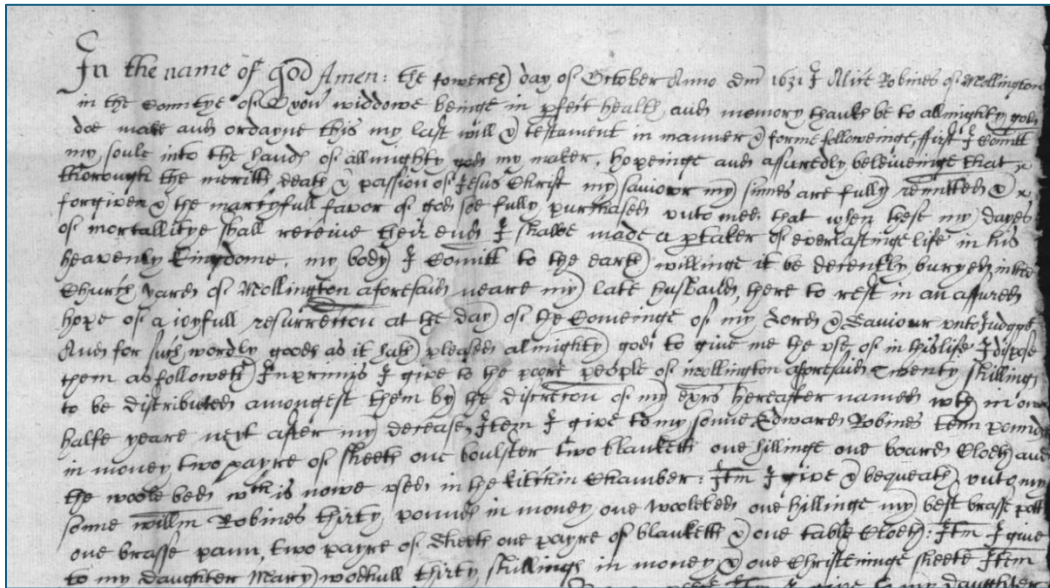 In the name of god Amen: the fowerth day of October Anno dm 1631 I Alice Robines of Mollington
in the Countye of Oxon widdowe beinge in pfect health and memory thanks be to allmighty god
doe make and ordayne this my last will & testament in manner & forme followeinge, ffirst I Comitt
my soule into the hands of allmighty god my maker, hopeinge and assuredly beleiveinge that
thorough the meritts death & passion of Jesus Christ my saviour my sinnes are fully remitted &
forgiven & the mercyfull favor of god soe fully purchased unto mee that when these my dayes
of mortallitye shall receive their end I shalbe made a ptaker of everlastinge life in his
heavenly kingdome, my body I Comitt to the earth willinge it be decently buryed in the
Church yard of Mollington aforesaid neare my late husband, there to rest in an assured
hope of a ioyfull resurrection at the day of the Comeinge of my Lord & Saviour unto Judgmt
And for such wordly goods as it hath pleased almighty god to give me the use of in this life I dispose
them as followeth Inprimis I give to the poore people of Mollington aforesaid twenty shillings
to be distributed amongest them by the discretion of my exrs hereafter named wthin one
halfe yeare next after my decease Item I give to my sonne Edward Robines tenn pounds
in money two payre of sheets one boulster two blanketts one hillinge one board Cloeth and
the woole bedd wch is nowe used in the kitchin Chamber: Itm I give & bequeath unto my
sonne willm Robines thirty pounds in money one woolebed one hillinge my best brasse pott
one brasse pann, two payre of sheets one payre of blanketts & one table Cloeth: Itm I give
to my daughter Mary woodhull thirty shillings in money & one Christeninge sheete Itm
I give to my daughter